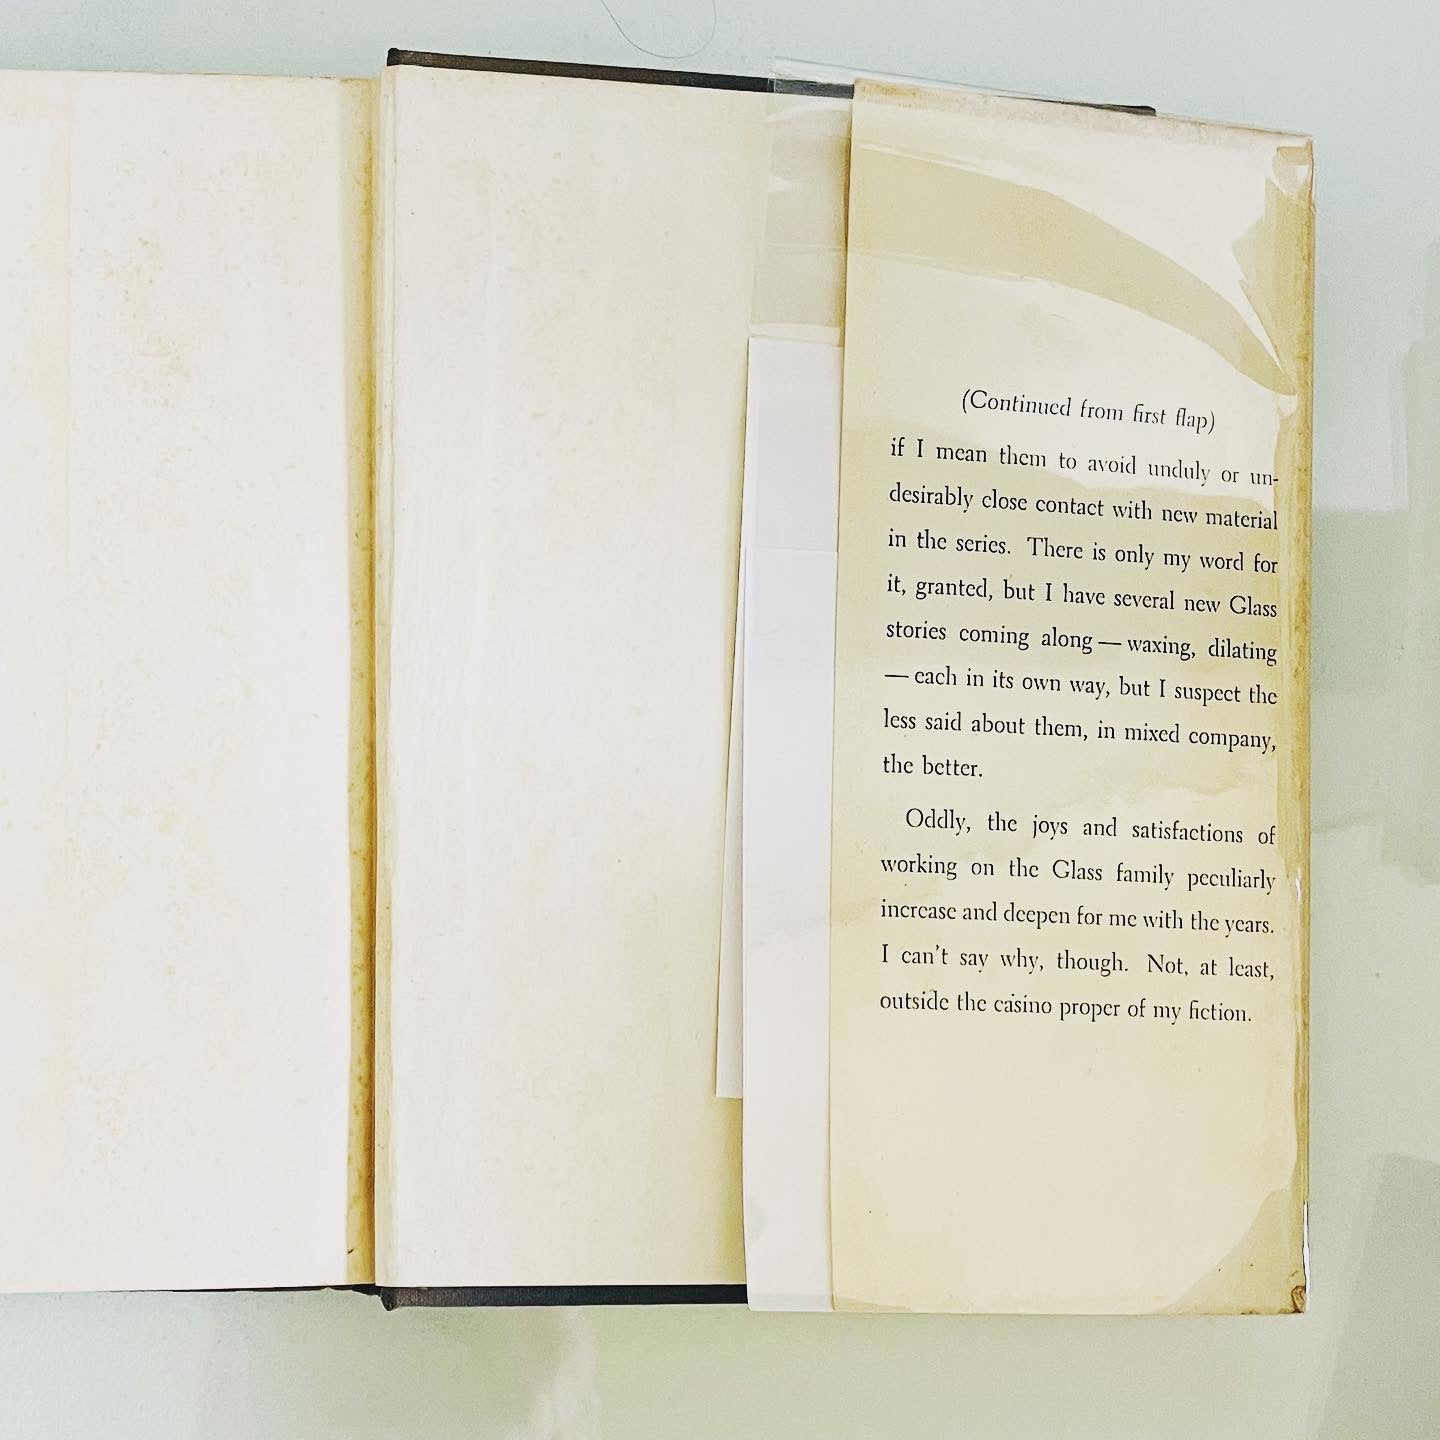 (Continued from first flap)
if I mean them to avoid unduly or un-
desirably close contact with new material
in the series. There is only my word for
it, granted, but I have several new Glass
stories coming along — waxing, dilating
— each in its own way, but I suspect the
less said about them, in mixed company,
the better.
Oddly, the joys and satisfactions of
working on the Glass family peculiarly
increase and deepen for me with the years.
I can't say why, though. Not, at least,
outside the casino proper of my fiction.